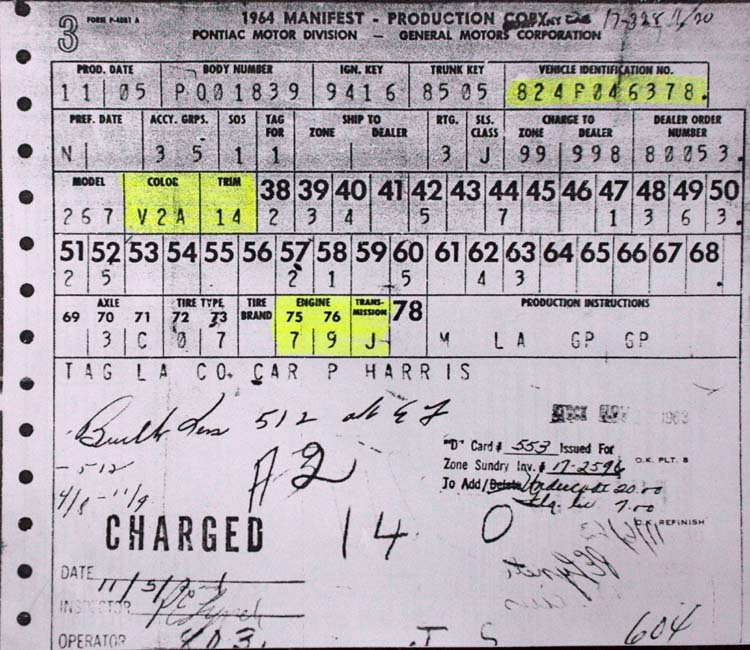 3 FORM P-4081 A
1964 MANIFEST - PRODUCTION COPY 17-328
PONTIAC MOTOR DIVISION — GENERAL MOTORS CORPORATION
PROD. DATE BODY NUMBER IGN. KEY TRUNK KEY VEHICLE IDENTIFICATION NO.
11 05 P001839 9416 8505 824P046378.
PREF. DATE ACCY. GRPS. SOS TAG FOR SHIP TO ZONE DEALER RTG. SLS. CLASS CHARGE TO ZONE DEALER DEALER ORDER NUMBER
N 3 5 1 1 3 J 99 998 80053.
MODEL COLOR TRIM 38 39 40 41 42 43 44 45 46 47 48 49 50
267 V2A 14 2 3 4 5 7 1 3 6 3.
51 52 53 54 55 56 57 58 59 60 61 62 63 64 65 66 67 68
2 5 2 1 5 4 3 .
AXLE TIRE TYPE TIRE BRAND ENGINE TRANS-MISSION 78 PRODUCTION INSTRUCTIONS
69 70 71 72 73 75 76
3 C 0 7 7 9 J M LA GP GP
TAG LA CO. CAR P HARRIS
Built Less 512
1963
"D" Card # 553 Issued For
O.K. PLT. 8
Zone Sundry Inv. # 17-2596
- 512
A2
To Add/Delete 20.00
7.00
4/8-11/9
CHARGED
14 0
O.K. REFINISH
DATE 11/5/
INSPECTOR
OPERATOR
604